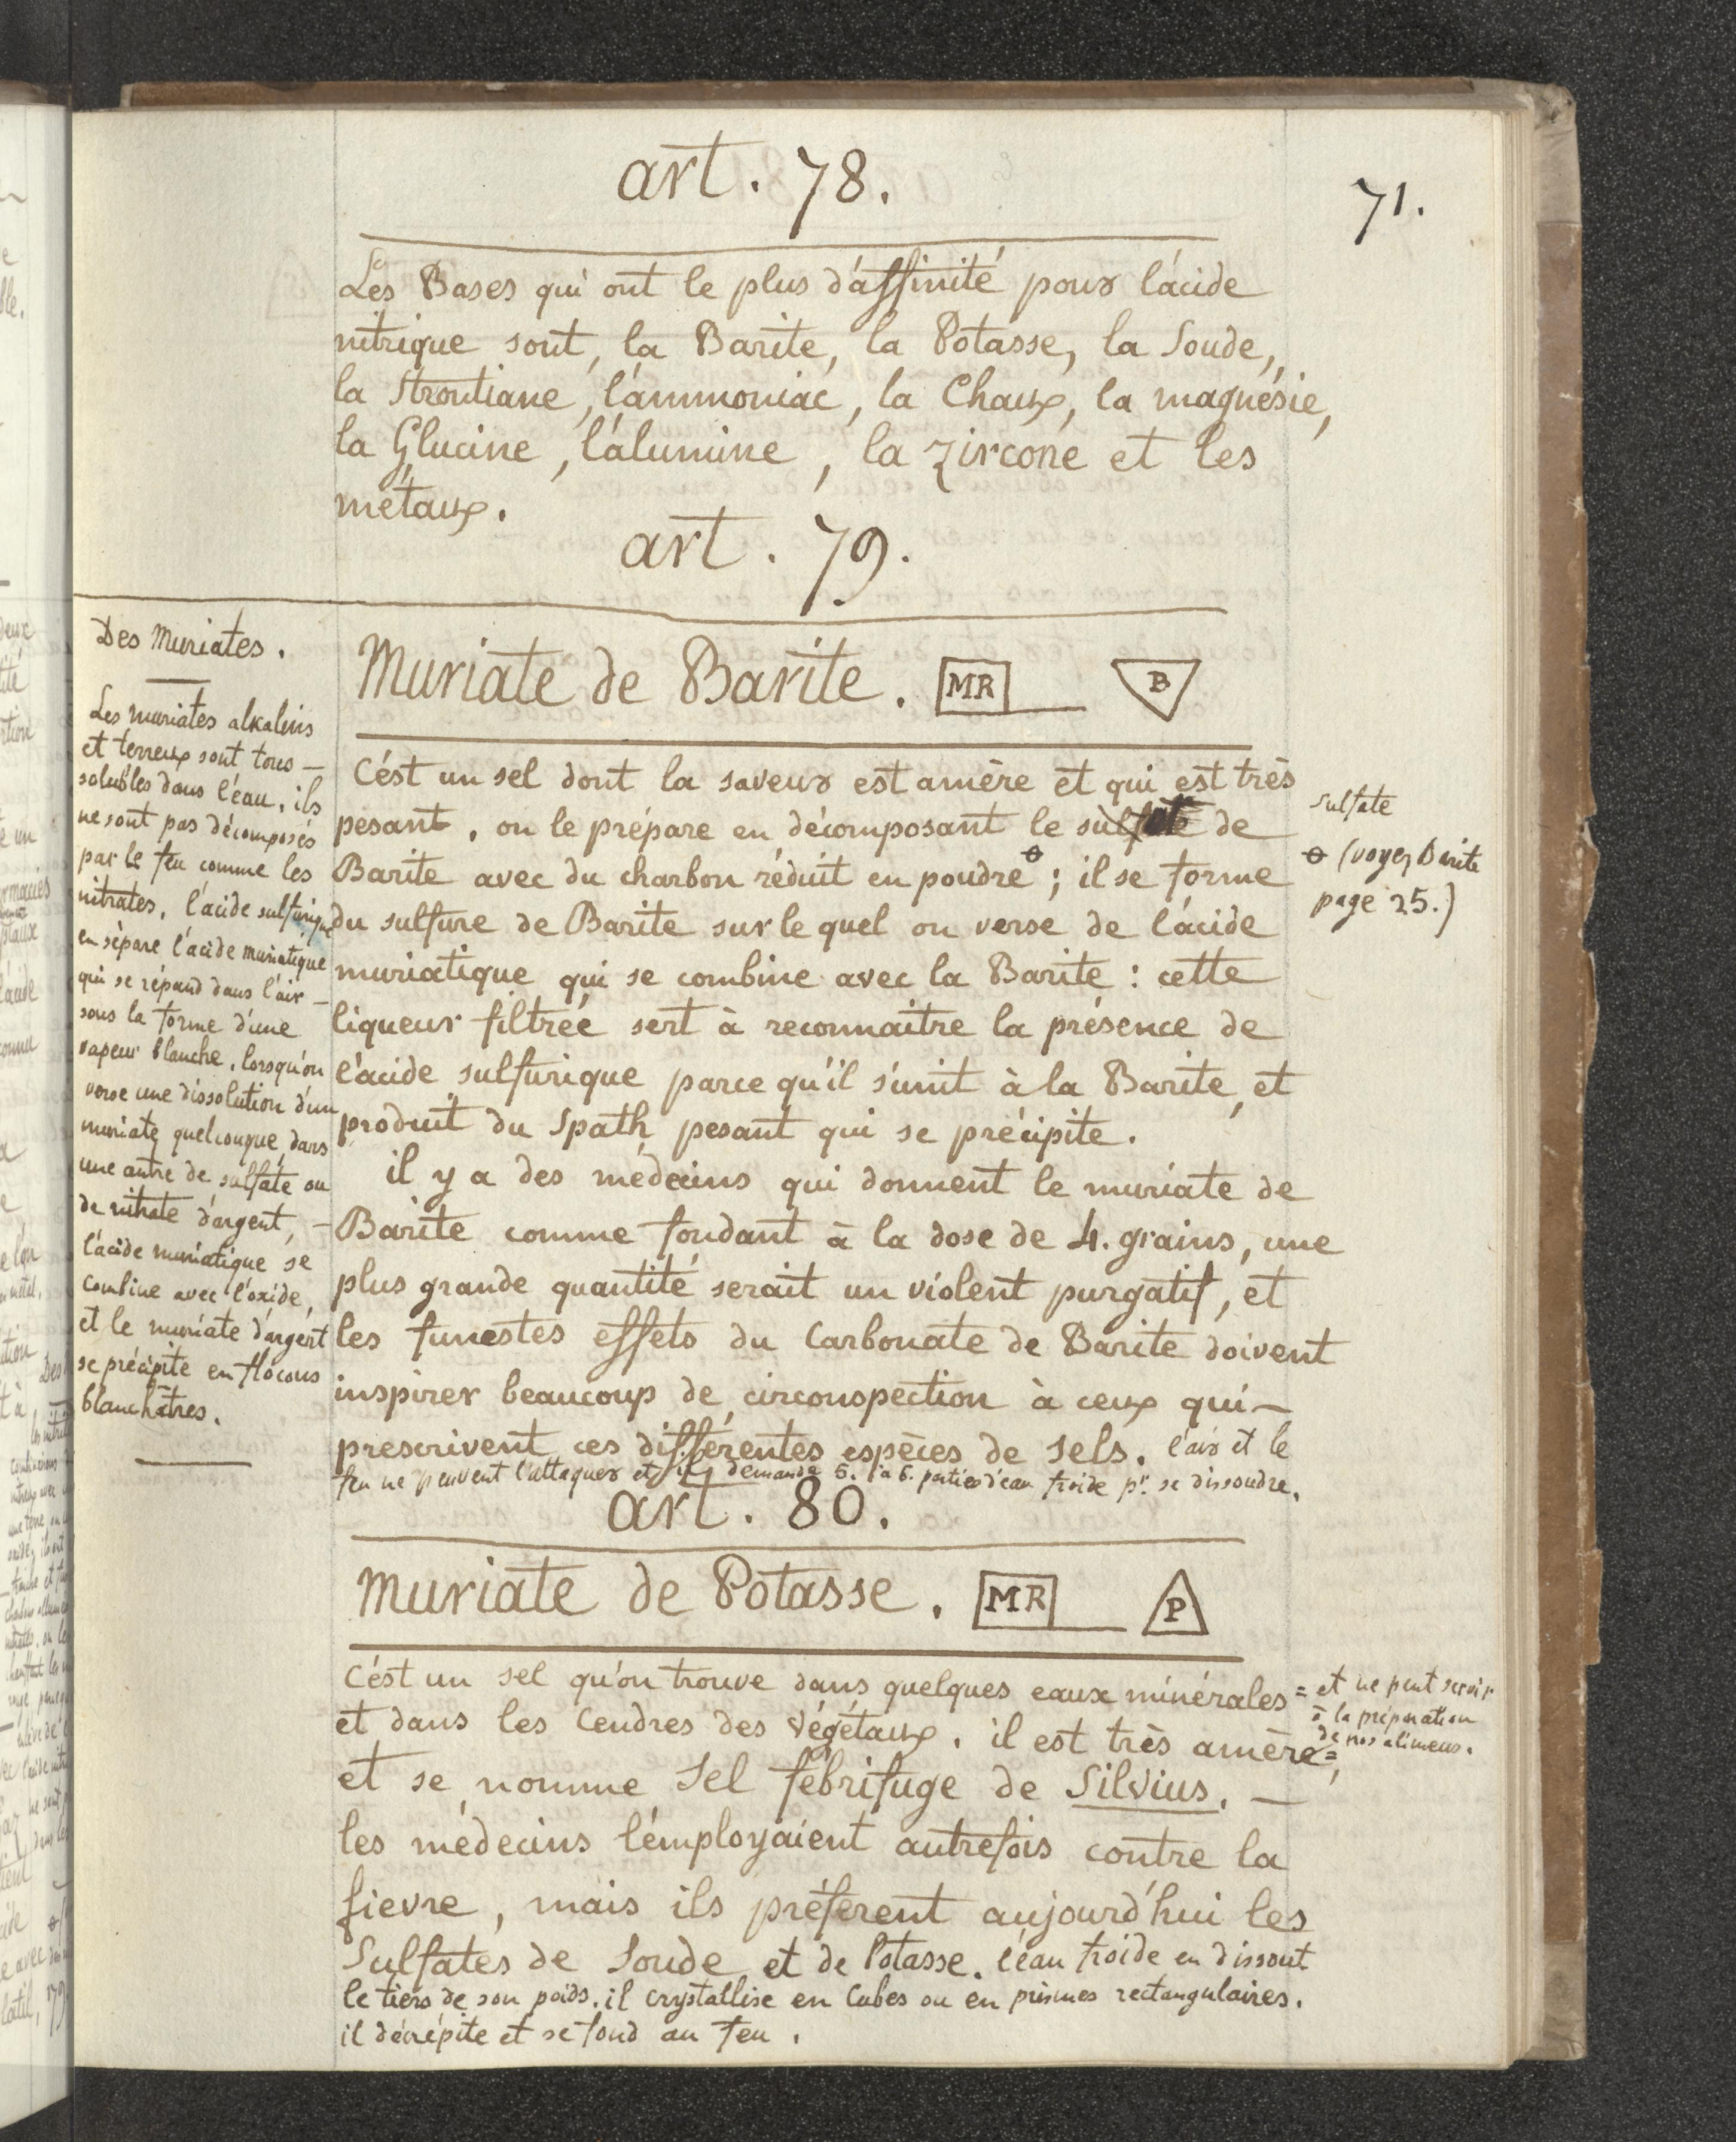 71.
art. 78.
Les Bases qui ont le plus d'affinité pour l'acide
nitrique sont, la Barite, la Potasse, la Soude,
la Strontiane, l'ammoniac, la Chaux, la magnésie,
la Glucine, l'alumine, la zircone et les
métaux.
art. 79.
Des Muriates.
Les muriates alkalins
et terreux sont tous —
solubles dans l'eau, ils
ne sont pas décomposés
par le feu comme les
nitrates, l'acide sulfurique
en sépare l'acide muriatique
qui se répand dans l'air —
sous la forme d'une
vapeur blanche, lorsqu'on
verse une dissolution d'un
muriate quelconque, dans
une autre de sulfate ou
de nitrate d'argent, —
l'acide muriatique se
combine avec l'oxide,
et le muriate d'argent
se précipite en flocons
blanchâtres.
Muriate de Barite. MR B
C'est un sel dont la saveur est amère et qui est très
pesant, on le prépare en décomposant le sulfate de
Barite avec du charbon réduit en poudre ⊖; il se forme
du sulfure de Barite sur le quel on verse de l'acide
muriatique qui se combine avec la Barite : cette
liqueur filtreé sert à reconnaitre la présence de
l'acide sulfurique parce qu'il s'unit à la Barite, et
produit du Spath pesant qui se précipite.
il y a des médecins qui donnent le muriate de
Barite comme fondant à la dose de 4. grains, une
plus grande quantité serait un violent purgatif, et
les funestes effets du Carbonate de Barite doivent
inspirer beaucoup de circonspection à ceux qui —
prescrivent ces différentes espèces de sels. l'air et le
feu ne peuvent l'attaquer et il demande 5. à 6. parties d'eau froide pr. se dissoudre.
sulfate
⊖ (voyez Barite
page 25.)
art. 80.
Muriate de Potasse. MR P
C'est un sel qu'on trouve dans quelques eaux minérales
et dans les Cendres des végétaux. il est très amère =,
et se nomme Sel fébrifuge de Silvius. —
les médecins l'employaient autrefois contre la
fievre, mais ils préferent aujourd'hui les
Sulfates de Soude et de Potasse. l'eau froide en dissout
le tiers de son poids. il crystallise en Cubes ou en prismes rectangulaires.
il décrépite et se fond au feu.
= et ne peut servir
à la préparation
de nos alimens.